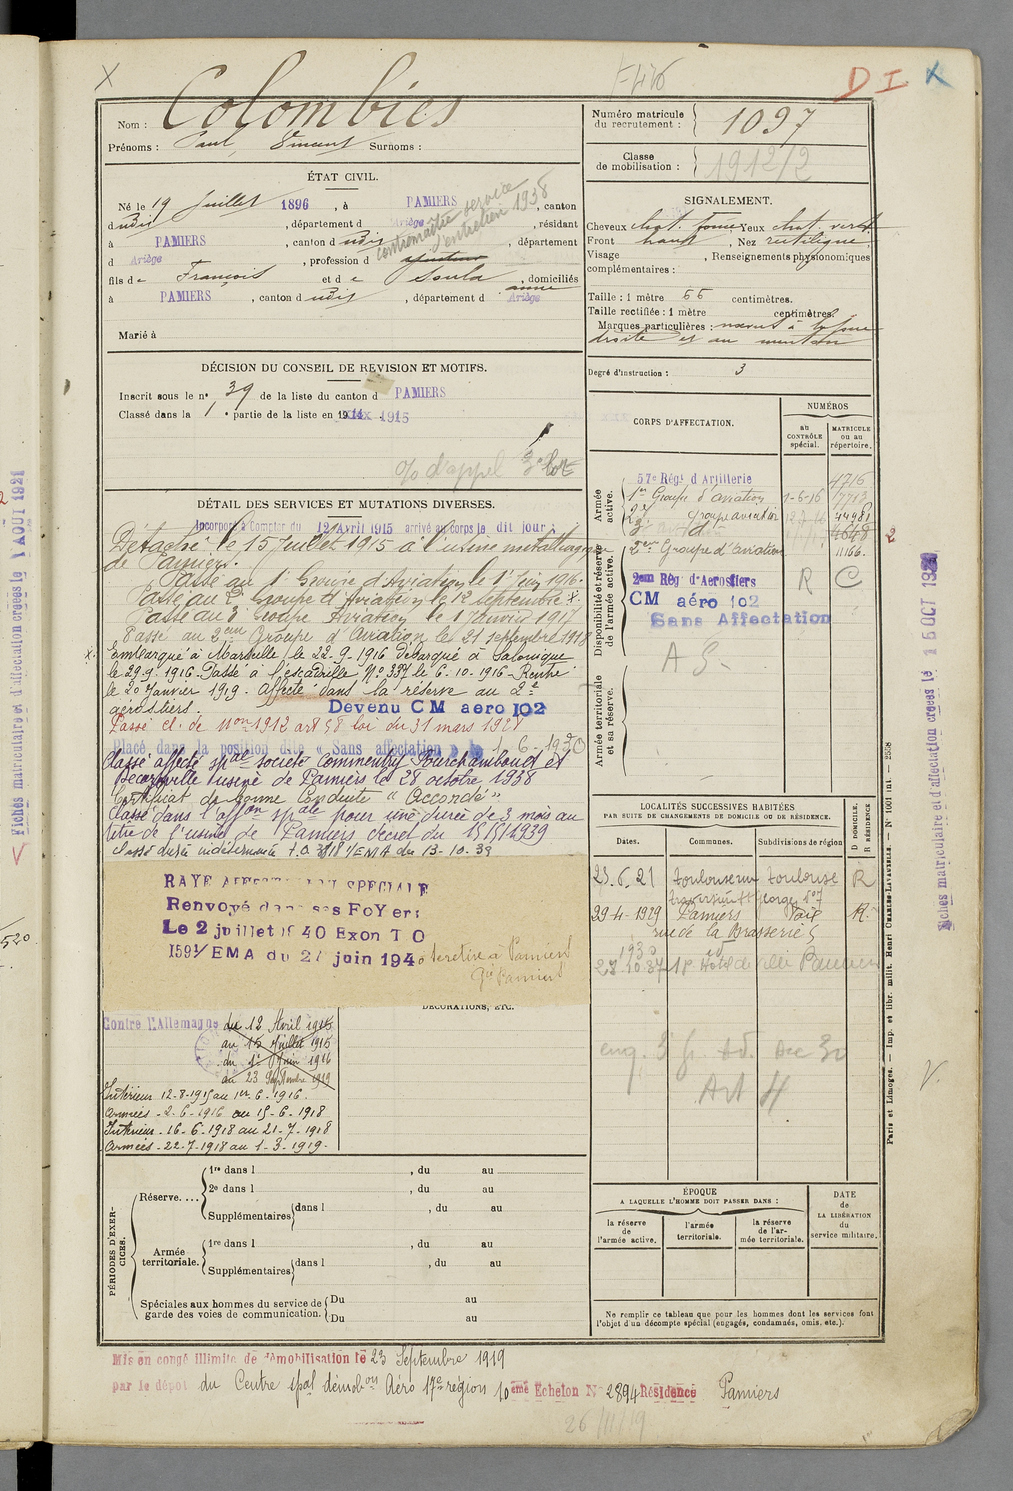 F476
D I X
Nom : Colombiès
Prénoms : Paul, Vincent Surnoms :
Numéro matricule du recrutement : 1097
Classe de mobilisation : 1912/2
ÉTAT CIVIL.
Né le 19 Juillet 1896, à PAMIERS, canton
dudit, département d Ariège, résidant
à PAMIERS, canton dudit, département
d Ariège, profession d ajusteur
contremaître service d'entretien 1938
fils de François et de Soula Anne, domiciliés
à PAMIERS, canton dudit, département d Ariège
Marié à
SIGNALEMENT.
Cheveux chat. foncé Yeux chat. verdt
Front haut, Nez rectiligne
Visage , Renseignements physionomiques
complémentaires :
Taille : 1 mètre 66 centimètres.
Taille rectifiée : 1 mètre centimètres.
Marques particulières : nævus à la joue
droite et au menton
Degré d'instruction : 3
DÉCISION DU CONSEIL DE REVISION ET MOTIFS.
Inscrit sous le n° 39 de la liste du canton d PAMIERS
Classé dans la 1 e partie de la liste en 1915
o/o d'appel 3e lot
CORPS D'AFFECTATION.
NUMÉROS
au CONTRÔLE spécial.
MATRICULE ou au répertoire.
Armée active.
57e Régt d'Artillerie 4716
1er Groupe d'aviation 1-6-16 17713
2e Groupe aviation 44981
3e d° 4648
Disponibilité et réserve de l'armée active.
2ème Groupe d'aviation 11166.
2ème Rég. d'Aérostiers R C
CM aéro 102
Sans Affectation
Armée territoriale et sa réserve.
DÉTAIL DES SERVICES ET MUTATIONS DIVERSES.
Incorporé à Compter du 12 Avril 1915 arrivé au corps le dit jour
Détaché le 15 Juillet 1915 à l'usine métallurgique
de Pamiers.
Passé au 1er Groupe d'Aviation le 1er Juin 1916.
Passé au 2e Groupe d'Aviation le 12 septembre X.
Passé au 3e Groupe Aviation le 1 Janvier 1917
Passé au 2ème Groupe d'Aviation le 21 septembre 1918
X Embarqué à Marseille le 22-9-1916 Débarqué à Salonique
le 29-9-1916. Passé à l'escadrille N° 387 le 6-10-1916 - Rentré
le 20 Janvier 1919. Affecté dans la réserve au 2e
aérostiers. Devenu CM aero 102
Passé cl. de mon 1912 art 58 loi du 31 mars 1928
Placé dans la position dite « Sans affectation » le 1-6-1930
Classé affecté spal société Commentry Fourchambault et
Decazeville usine de Pamiers le 28 octobre 1938
Certificat de Bonne Conduite "Accordé"
Classé dans l'affon spale pour une durée de 3 mois au
titre de l'usine de Pamiers decret du 15/5/1939
classé durée indéterminée T.O. 3918 1/EMA du 13-10-39
RAYÉ AFFECTATION SPECIALE
Renvoyé dans ses FoYers
Le 2 juillet 1940 Exon T O
1591/EMA du 27 juin 1940
se retire à Pamiers
DÉCORATIONS, ETC.
Contre l'Allemagne du 12 Avril 1915
au 15 Juillet 1915
du 1er Juin 1916
au 23 Septembre 1919
Intérieur 12-8-1915 au 1er-6-1916.
Armées - 2-6-1916 au 15-6-1918
Intérieur - 16-6-1918 au 21-7-1918
Armées - 22-7-1918 au 1-3-1919.
LOCALITÉS SUCCESSIVES HABITÉES
PAR SUITE DE CHANGEMENTS DE DOMICILE OU DE RÉSIDENCE.
Dates. Communes. Subdivisions de région
D DOMICILE. R RÉSIDENCE
23.6.21 Toulouse Toulouse R
29-4-1929 Pamiers Foix R.
rue de la Brasserie 5
1930
23.10.37 18 Hotel de Ville Pamiers
Art 4
PÉRIODES D'EXERCICES.
Réserve....
1re dans l , du au
2e dans l , du au
Supplémentaires dans l , du au
Armée territoriale.
1re dans l , du au
Supplémentaires dans l , du au
Spéciales aux hommes du service de garde des voies de communication.
Du au
Du au
ÉPOQUE
A LAQUELLE L'HOMME DOIT PASSER DANS :
la réserve de l'armée active.
l'armée territoriale.
la réserve de l'armée territoriale.
DATE de LA LIBÉRATION du service militaire.
Ne remplir ce tableau que pour les hommes dont les services font
l'objet d'un décompte spécial (engagés, condamnés, omis, etc.).
Mis en congé illimité de démobilisation le 23 Septembre 1919
par le dépôt du Centre spal démobon Aéro 17e région 10ème Echelon N° 2894 Résidence Pamiers
26/11/19
Paris et Limoges. — Imp. et libr. milit. Henri CHARLES-LAVAUZELLE. — N° 1001 int. — 2558
Fiches matriculaire et d'affectation créées le 15 OCT 192
Fiches matriculaire et d'affectation créées le 1 AOUT 1921
520